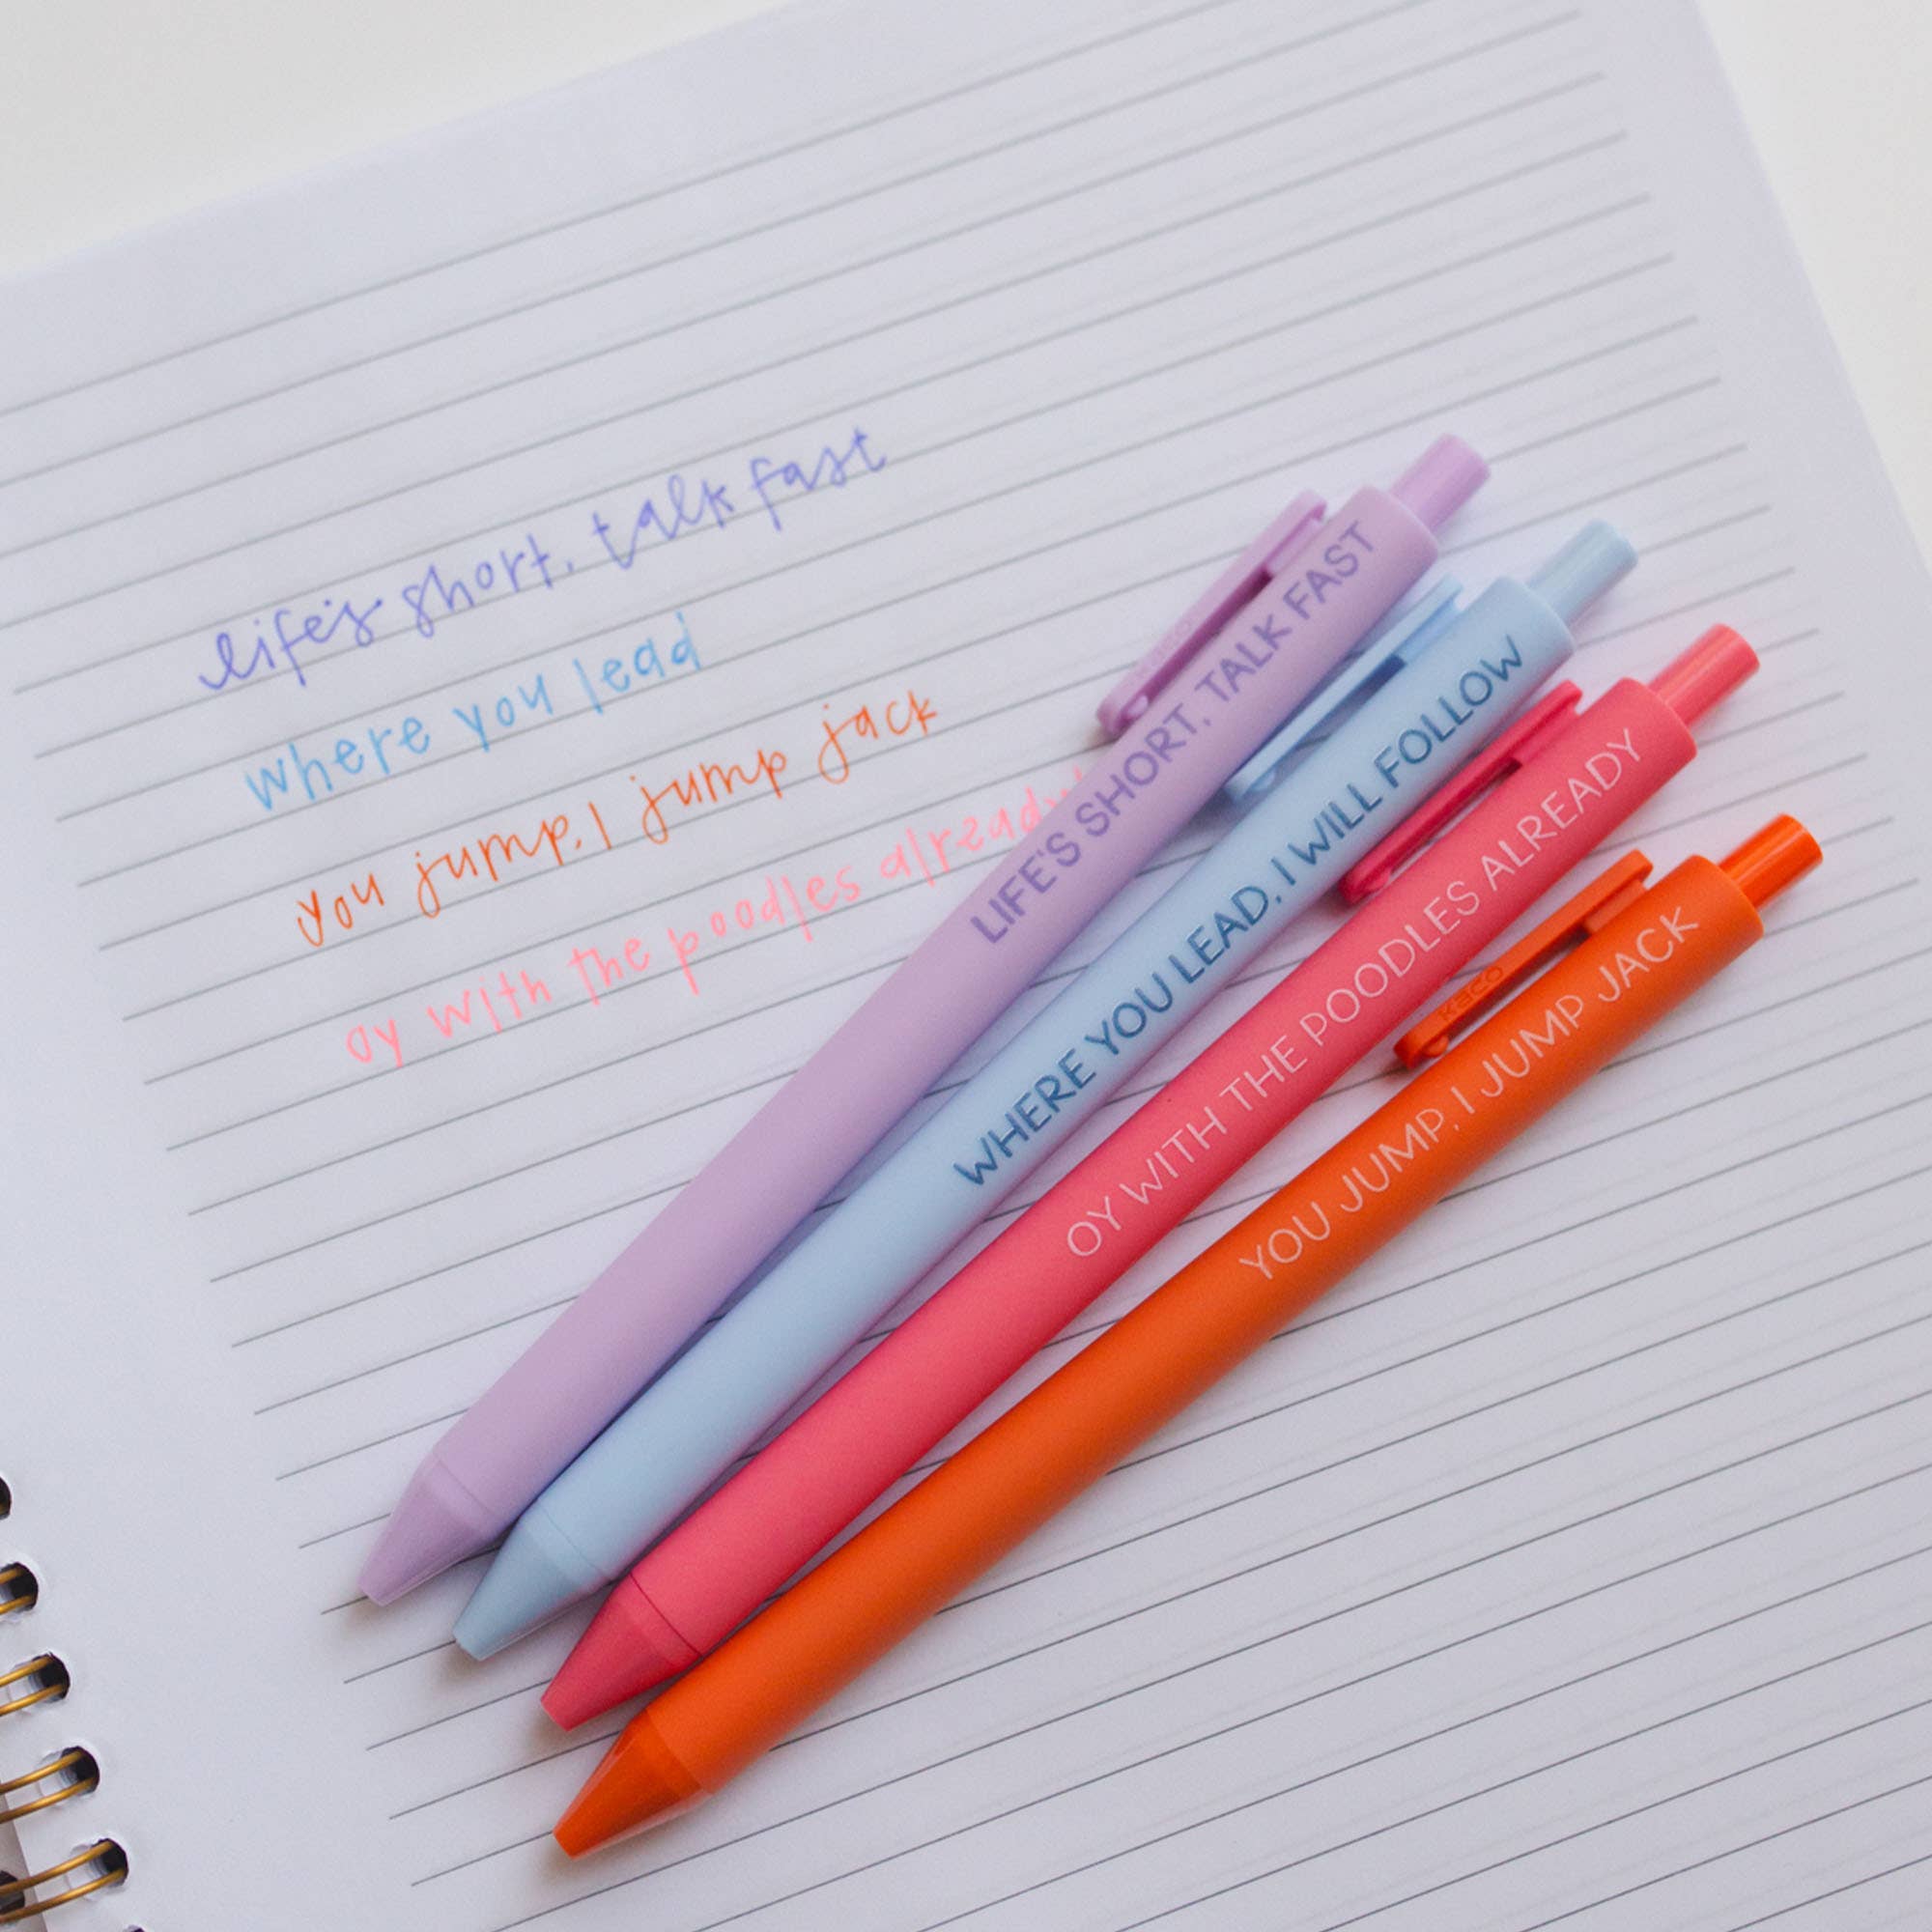 life's short, talk fast
where you lead
you jump, I jump jack
oy with the poodles already
LIFE'S SHORT, TALK FAST
WHERE YOU LEAD, I WILL FOLLOW
OY WITH THE POODLES ALREADY
YOU JUMP, I JUMP JACK
kaco